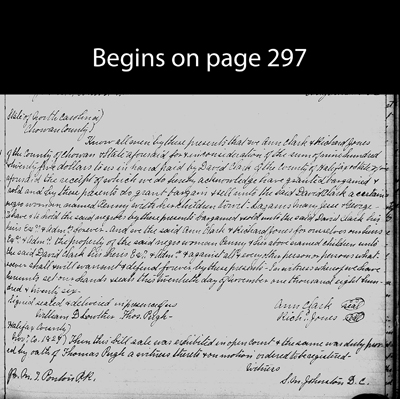 Begins on page 297
State of North Carolina)
Chowan County)
Know all men by these presents that we Ann Clark & Richard Jones
of the County of Chowan & State aforesaid for & in consideration of the sum of nine hundred
& twenty five dollars to us in hand paid by David Clark of the County of Halifax & State
aforesaid the receipt of which we do hereby acknowledge have granted bargained &
sold and by these presents do grant bargain & sell unto the said David Clark a certain
negro woman named Penny with her children to wit. George
To have & to hold the said negroes by these presents bargained & sold unto the said David Clark his
heirs Exs. & Admrs. forever. And we the said Ann Clark & Richard Jones for ourselves our heirs
Exs. & Admrs. the property of the said negro woman Penny & her above named children unto
the said David Clark his heirs Exs. & Admrs. & against all & every other person or persons what
soever shall & will warrant & defend forever by these presents. In witness whereof we have
hereunto set our hands & seals this twentieth day of November one thousand eight hun-
dred & twenty six.
Signed sealed & delivered in presence of us
Ann Clark seal
William D Lowther Thos. Pugh
Richd. Jones seal
Halifax County)
Novr. Co. 1827) Then this bill sale was exhibited in open Court & the same was duly prov
ed by oath of Thomas Pugh a witness thereto & on motion ordered to be registered
Witness
J. Ponton P.R.
S.M Johnston D.C.